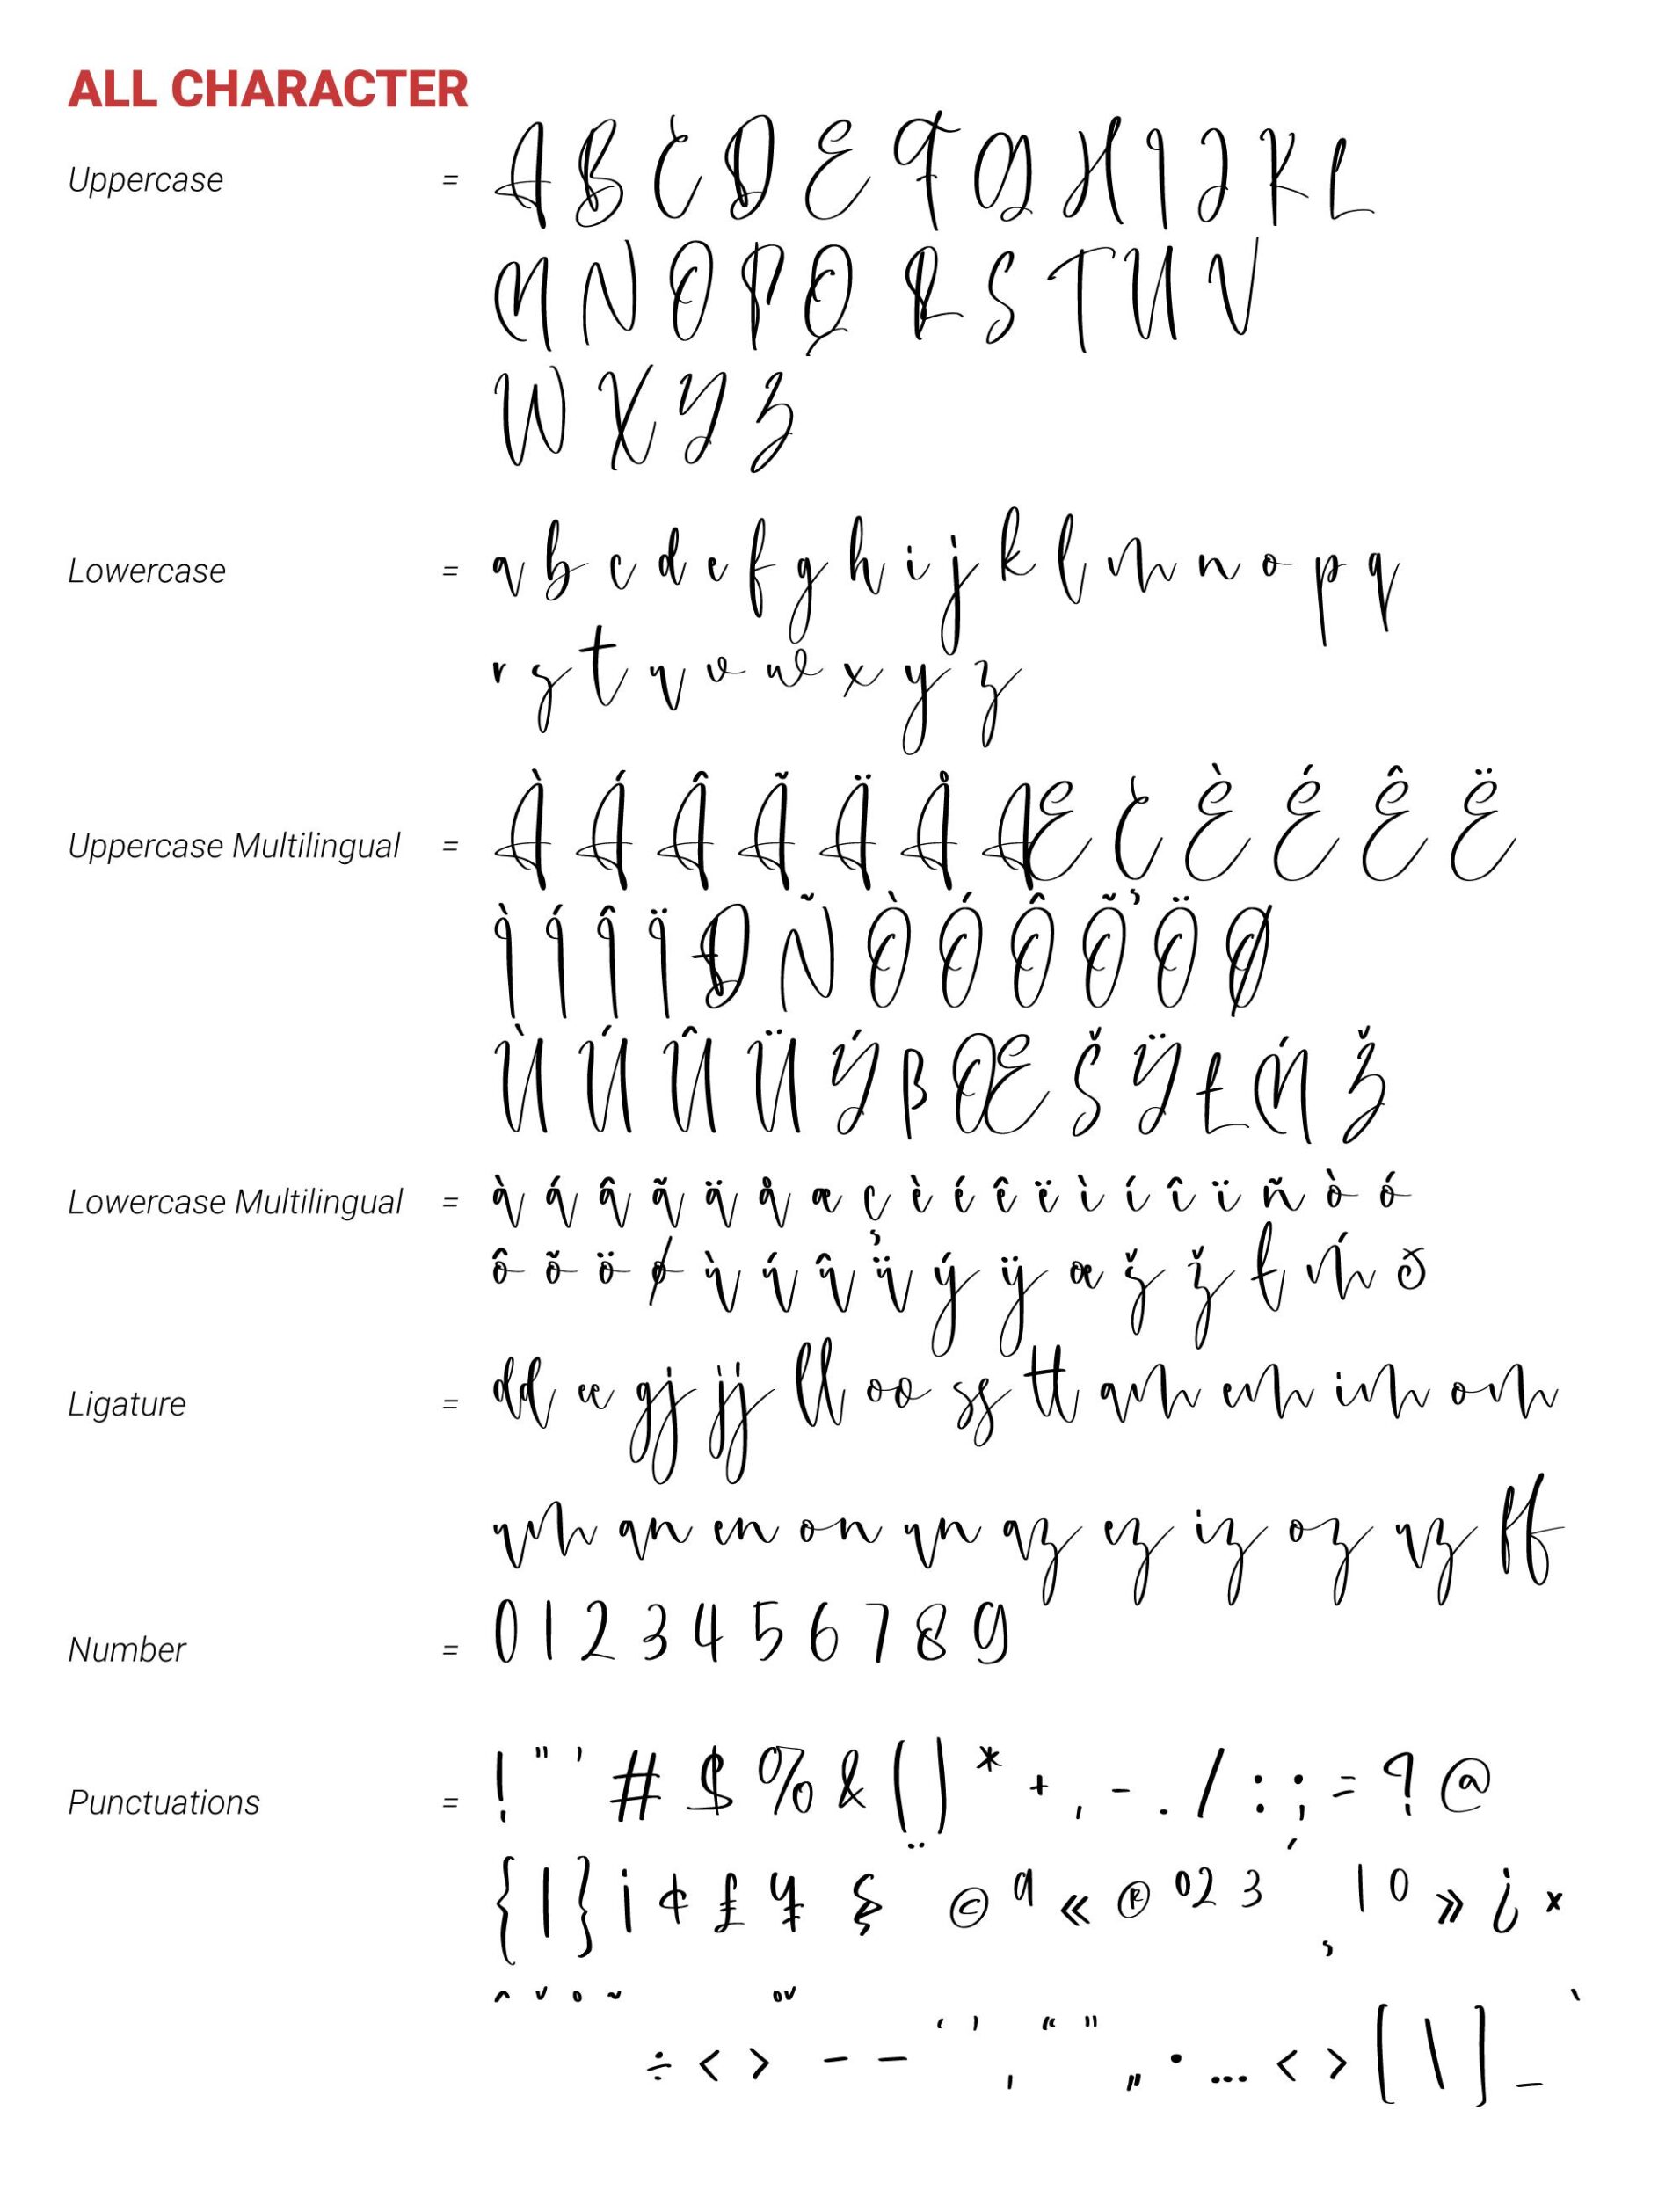 ALL CHARACTER
Uppercase = A B C D E F G H I J K L
M N O P Q R S T U V
W X Y Z
Lowercase = a b c d e f g h i j k l m n o p q
r s t u v w x y z
Uppercase Multilingual = À Á Â Ã Ä Å Æ Ç È É Ê Ë
Ì Í Î Ï Đ Ñ Ò Ó Ô Õ Ö Ø
Ù Ú Û Ü Ý ß Œ Š Ÿ Ł Ḿ Ž
Lowercase Multilingual = à á â ã ä å æ ç è é ê ë ì í î ï ñ ò ó
ô õ ö ø ù ú û ü ý ÿ œ š ž ł ḿ ð
Ligature = dd ee gj jj ll oo ss tt am em im om
um an en on un az ez iz oz uz ff
Number = 0 1 2 3 4 5 6 7 8 9
Punctuations = ! " ' # $ % & ( ) * + , - . / : ; = ? @
{ | } ¡ ¢ £ ¥ § ¨ © ª « ® º 2 3 ´ ¸ 1 0 » ¿ ×
ˆ ˇ ˚ ˜ ÷ < > – — ‘ ’ ‚ “ ” „ • … ‹ › [ \ ] _ `